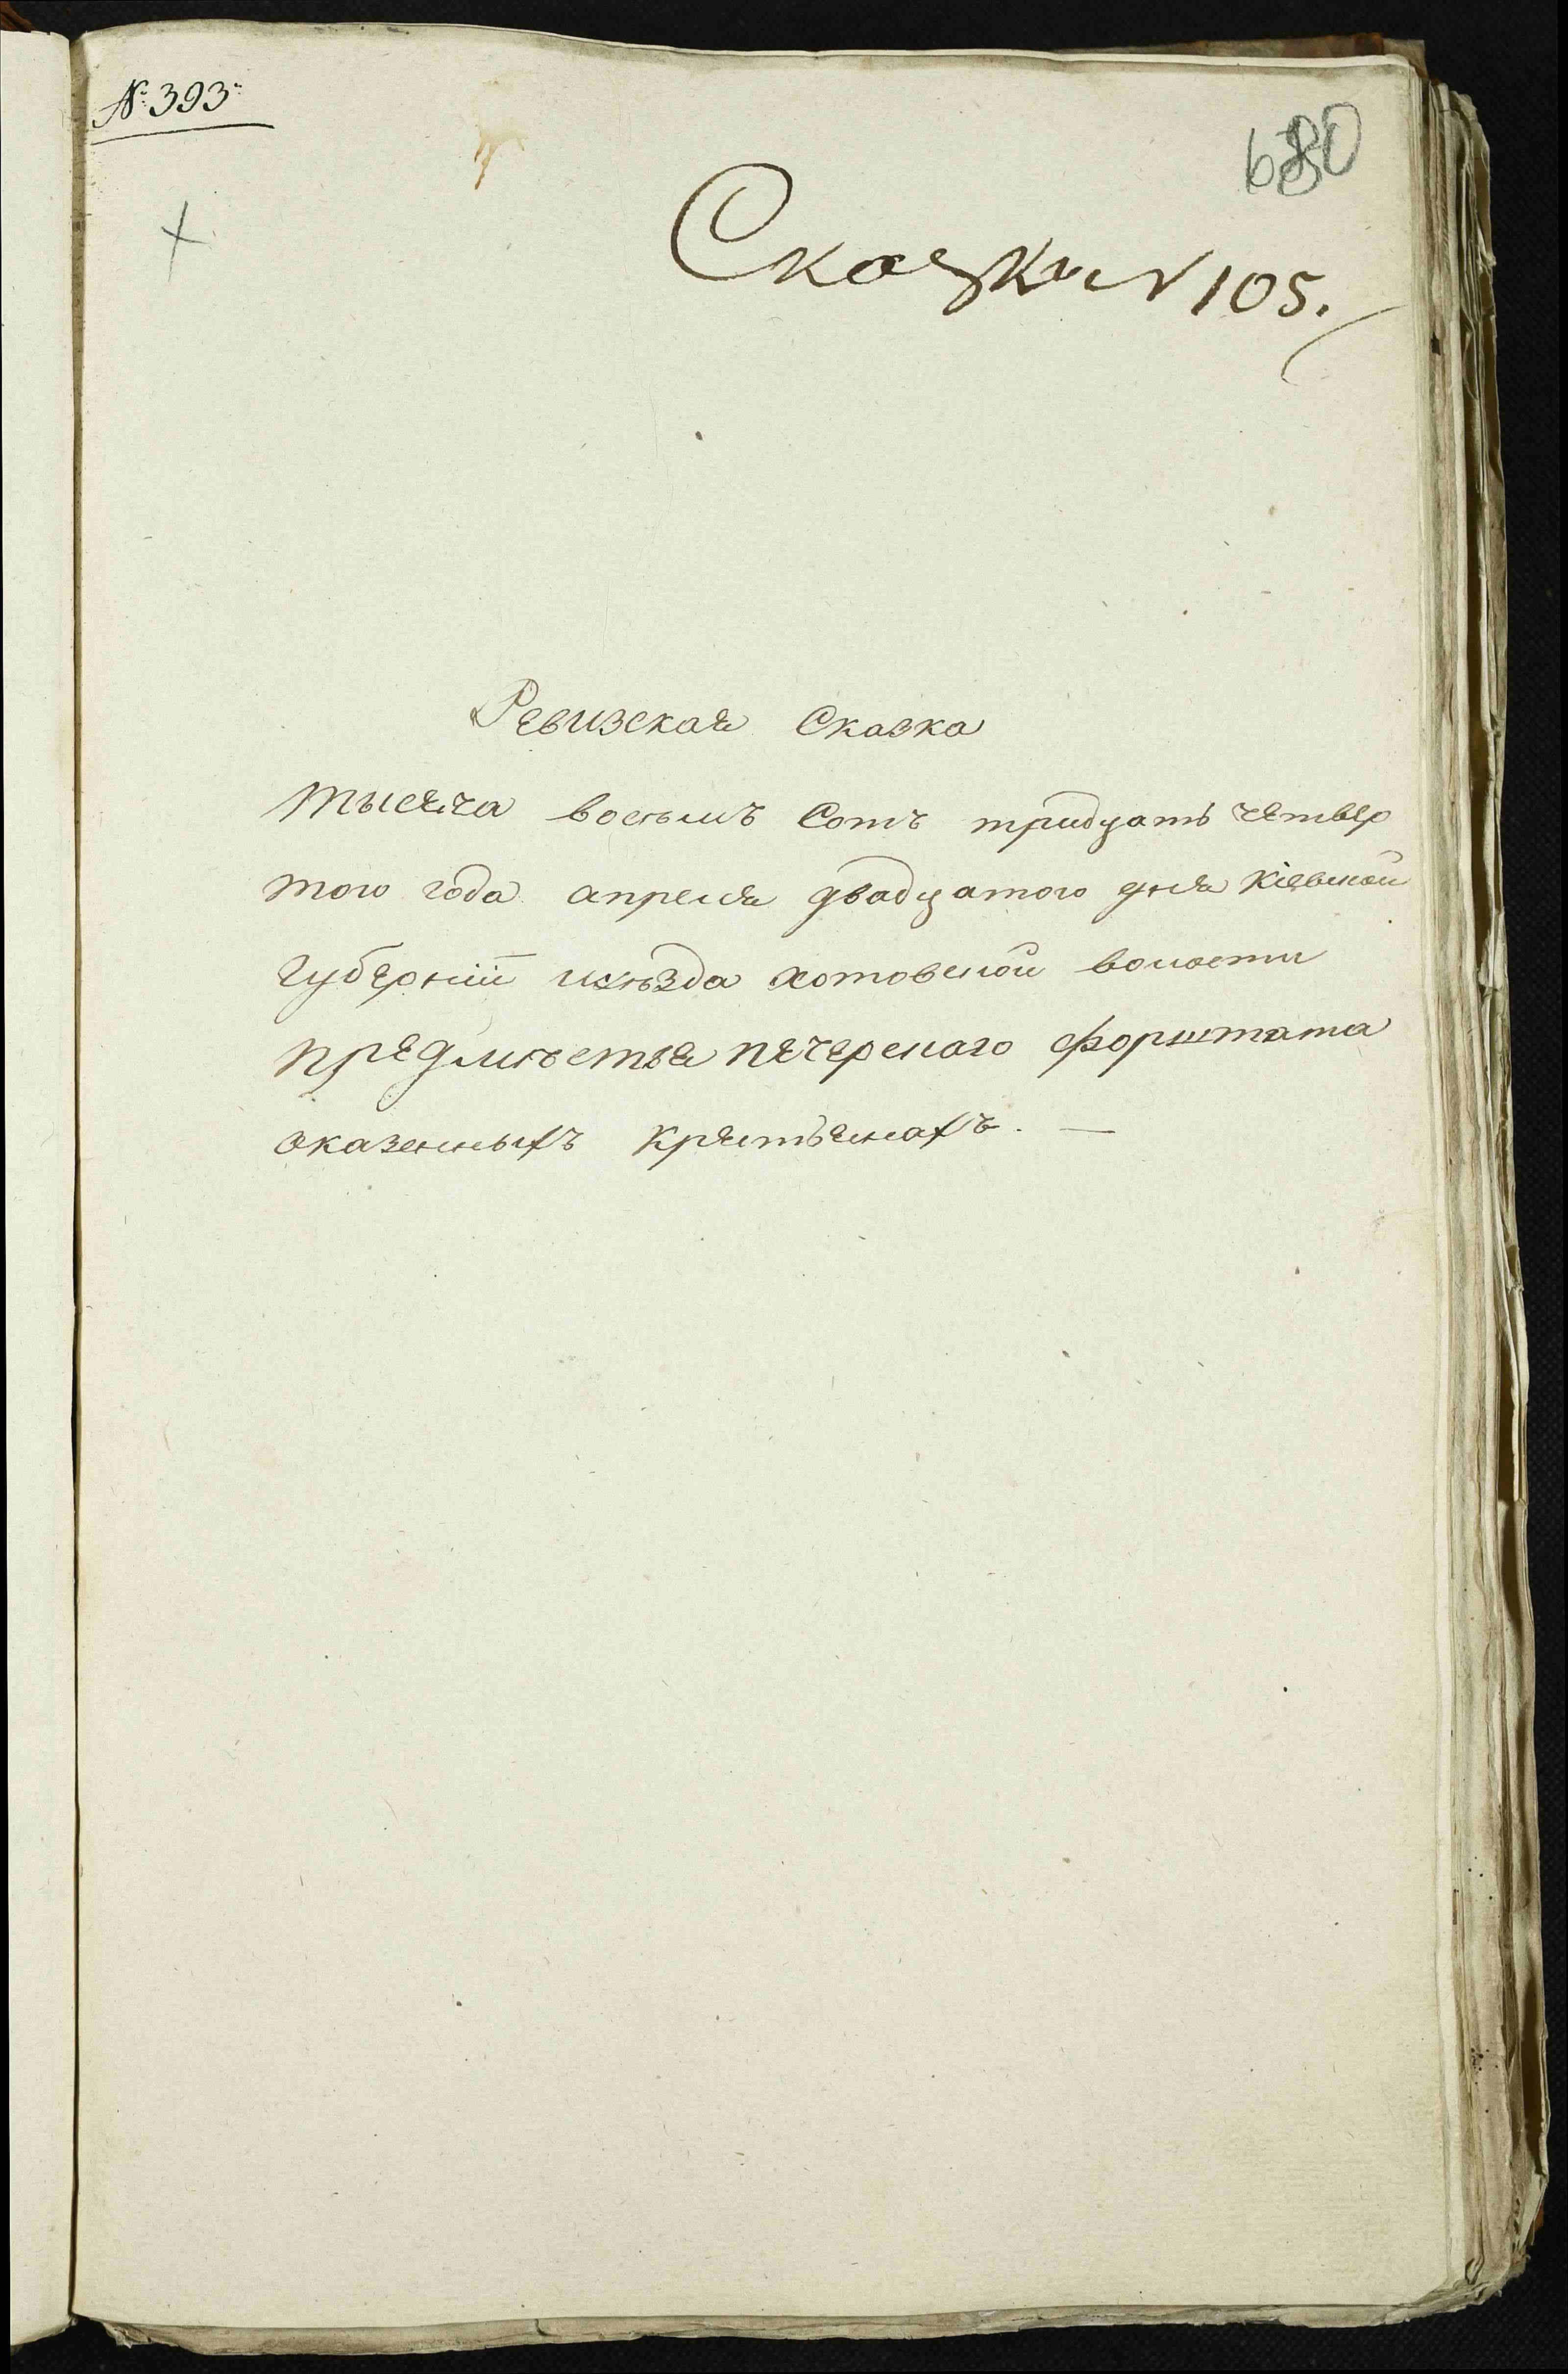 № 393
680
Сказка № 105.
Ревизская Сказка
тысяча восьмъ Сотъ тридцать четвер
того года апреля двадцатого дня Кіевской
губерніи иуѣзда хотовской волости
предмѣстья печерскаго форштата
оказенныхъ Крестьянахъ. —